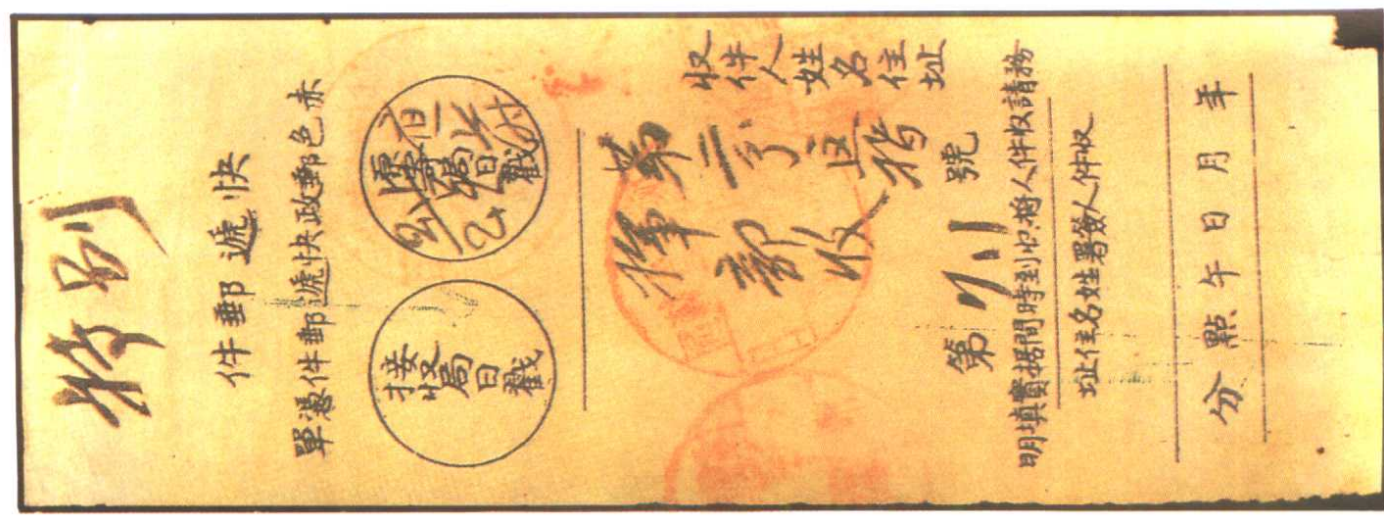 特别
快遞郵件
赤色郵政快遞郵件憑單
原寄局日戳
接收局日戳
收件人姓名住址
第二分區指
揮部收
第 71 號
務請收件人將收到時間據實填明
收件人簽署姓名住址
年月日午點分